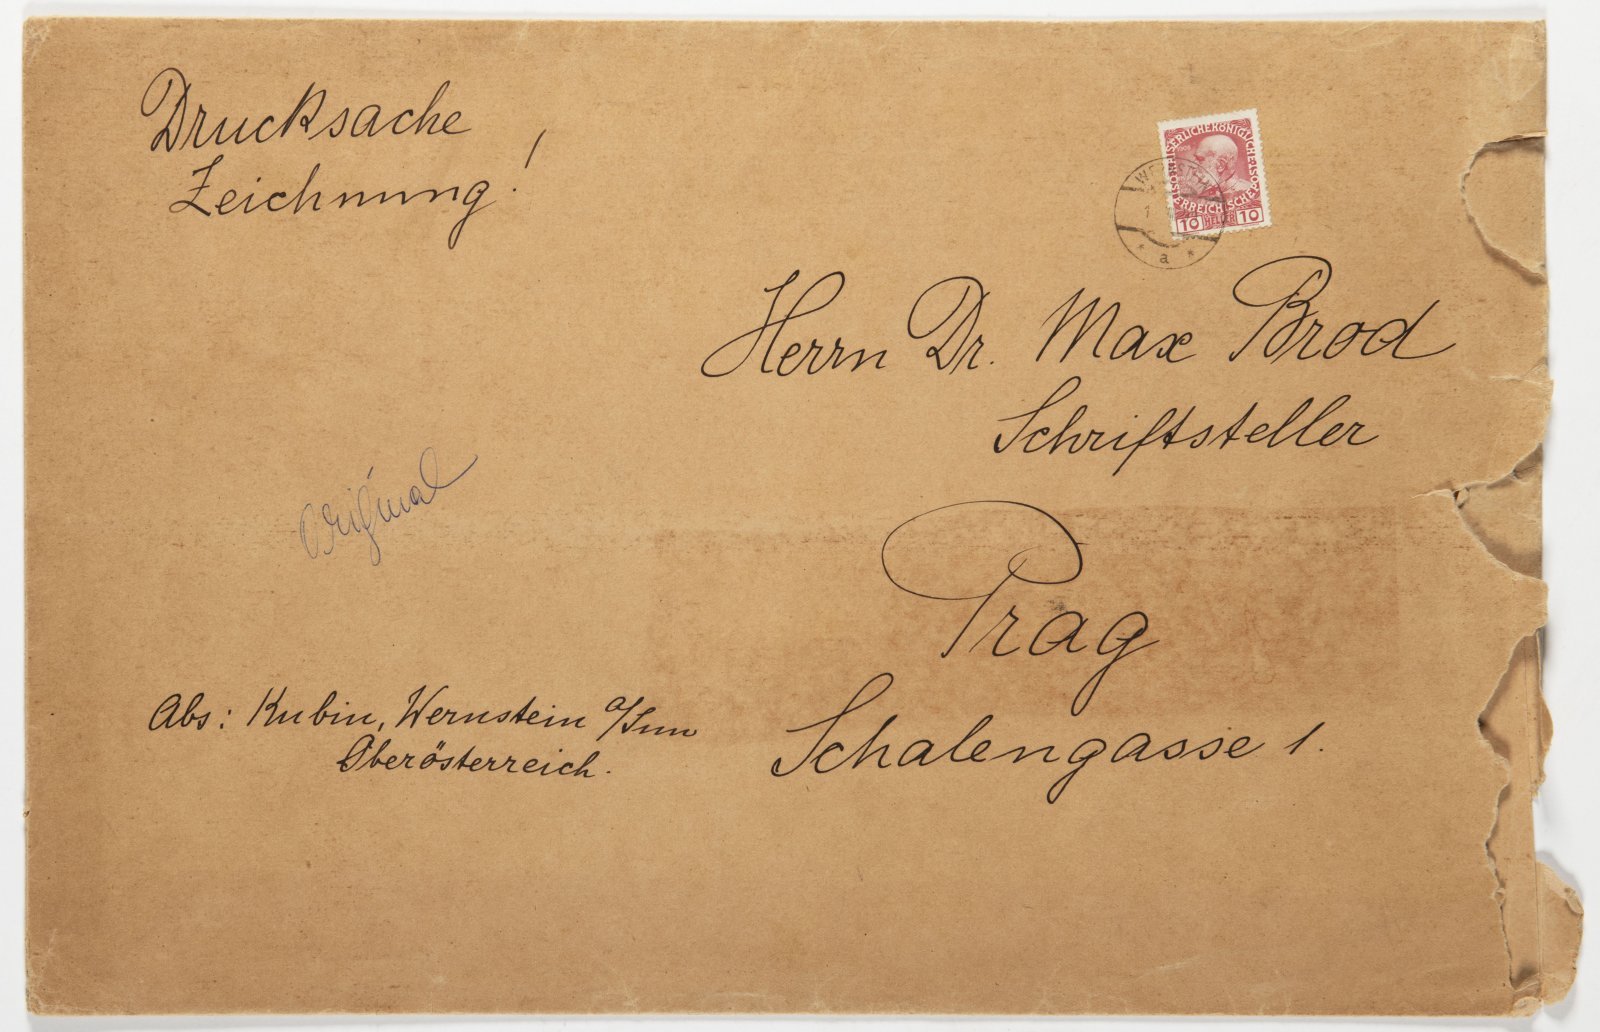 Drucksache
Zeichnung!
KAISERLICHE KÖNIGLICHE ÖSTERREICHISCHE
1908
10 HELLER 10
a
Herrn Dr. Max Brod
Schriftsteller
Original
Prag
Schalengasse 1.
Abs: Kubin, Wernstein a/Inn
Oberösterreich.